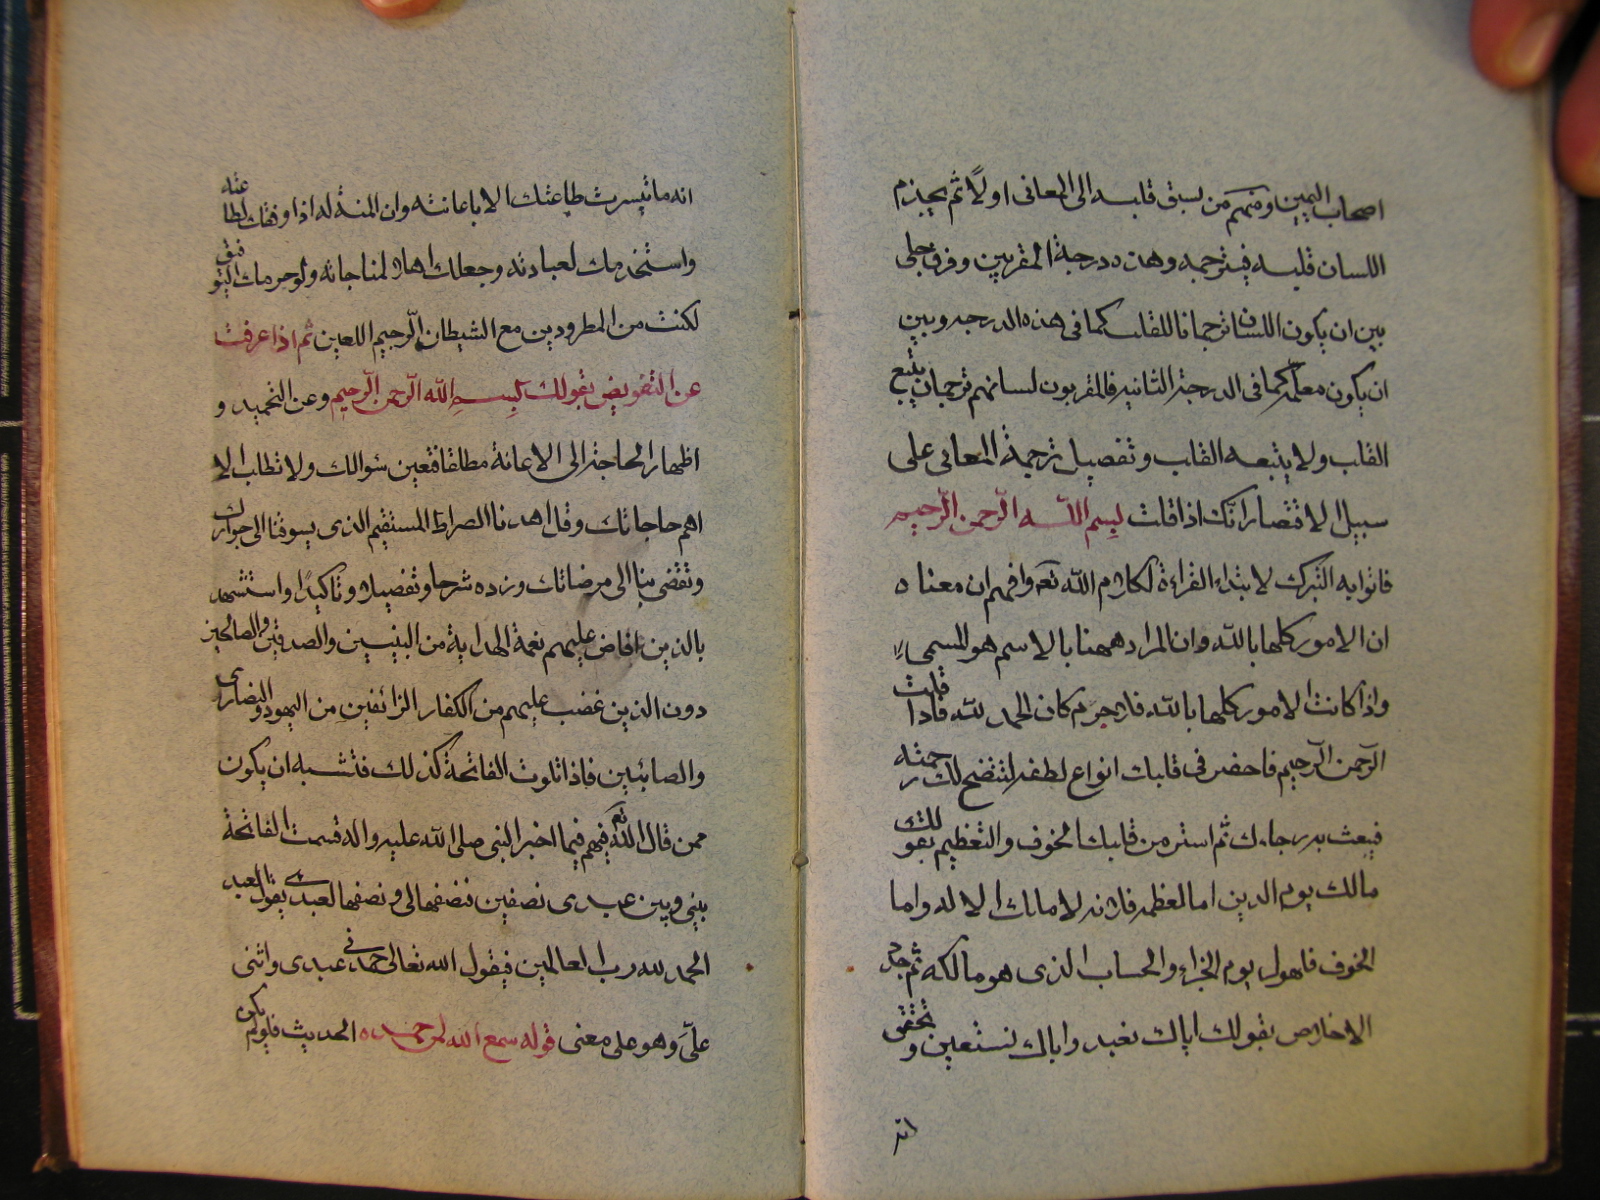 اصحاب اليمين ومنهم من يسبق قلبه الى المعانى اولًا ثم يخدم
اللسان قلبه فيترجمه وهذه درجة المقربين وفرق جلى
بين ان يكون اللسان ترجمانا للقلب كما فى هذه الدرجه وبين
ان يكون معلّمه كما فى الدرجة الثانيه فالمقربون لسانهم ترجمان يتبع
القلب ولا يتبعه القلب وتفصيل ترجمة المعانى على
سبيل الاقتصار انك اذا قلت بسم اللّه الرّحمن الرّحيم
فانو به التبرك لابتداء القراءة لكلام اللّه تعه وافهم ان معناه
ان الامور كلها باللّه وان المراد ههنا بالاسم هو المسمى
واذا كانت الامور كلها باللّه فلا جرم كان الحمد للّه فاذا قلت
الرّحمن الرّحيم فاحضر فى قلبك انواع لطفه لتتضح لك رحمته
فيبعث به رجاءك ثم استر من قلبك الخوف والتعظيم بقولك
مالك يوم الدين اما العظمه فلانه لا مالك الا له واما
الخوف فلهول يوم الجزاء والحساب الذى هو مالكه ثم جدد
الاخلاص بقولك اياك نعبد واياك نستعين وتحقق
انه
انه ما تيسرت طاعتك الا باعانته وان المنة له اذ اوفقك لطاعته
واستخدمك لعبادته وجعلك اهلا لمناجاته ولو حرمك التوفيق
لكنت من المطرودين مع الشيطان الرّجيم اللعين ثم اذا عرفت
عن التفويض بقولك بسم اللّه الرّحمن الرّحيم وعن التحميد و
اظهار الحاجة الى الاعانة مطلقا فتعين سؤالك ولا تطلب الا
اهم حاجاتك وقل اهدنا الصراط المستقيم الذى يسوقنا الى جوارك
وتفضى بنا الى مرضاتك وزده شرحا وتفصيلا وتاكيدًا واستشهد
بالذين افاض عليهم نعمة الهداية من النبيين والصديقين والصالحين
دون الذين غضب عليهم من الكفار الزائفين من اليهود والنصارى
والصابئين فاذا تلوت الفاتحة كذلك فتشبه ان يكون
ممن قال اللّه تعه فيهم فيما اخبر النبى صلى اللّه عليه واله قسمت الفاتحة
بينى وبين عبدى نصفين فنصفها لى ونصفها لعبدى يقول العبد
الحمد للّه رب العالمين فيقول اللّه تعالى حمدنى عبدى واثنى
علىّ وهو على معنى قوله سمع اللّه لمن حمده الحديث فلو لم يكن